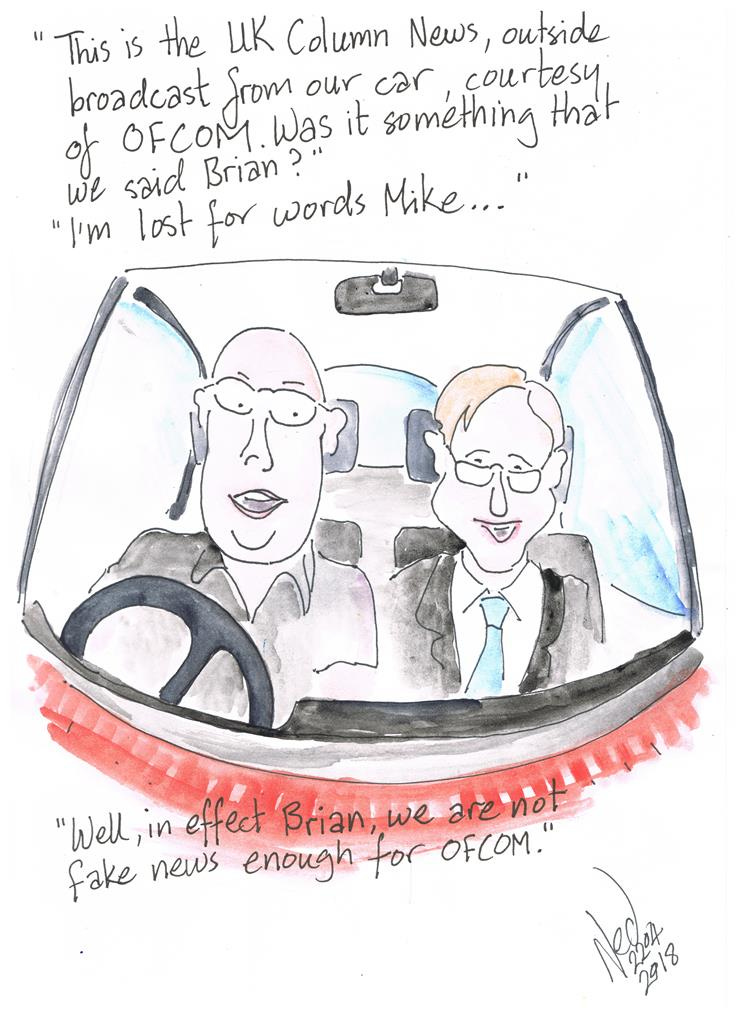 "This is the UK Column News, outside
broadcast from our car, courtesy
of OFCOM. Was it something that
we said Brian?"
"I'm lost for words Mike..."
"Well, in effect Brian, we are not
fake news enough for OFCOM."
Ned
2204
2918